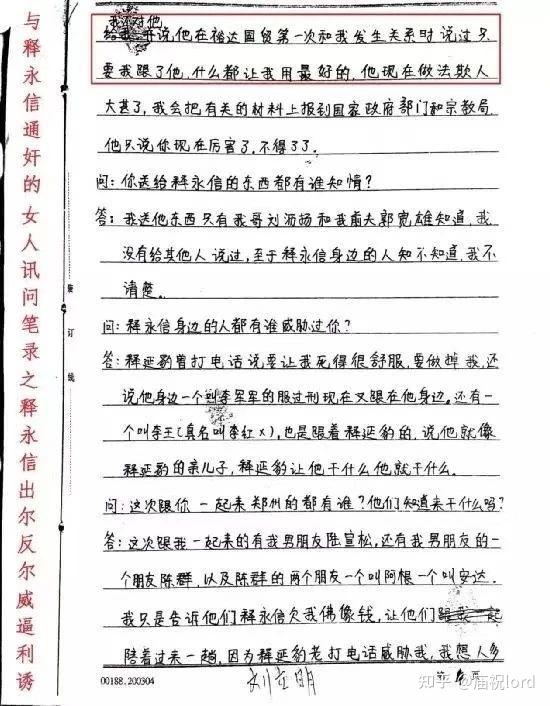 与释永信通奸的女人讯问笔录之释永信出尔反尔威逼利诱
我不对他
给我 说他在裕达国贸第一次和我发生关系时说过只
要我跟了他,什么都让我用最好的,他现在做法欺人
太甚了,我会把有关的材料上报到国家政府部门和宗教局
他只说你现在厉害了,不得了了.
问:你送给释永信的东西都有谁知情?
答:我送他东西只有我哥刘 扬和我前夫郭宽雄知道,我
没有给其他人说过,至于释永信身边的人知不知道,我不
清楚。
装
订
线
问:释永信身边的人都有谁威胁过你?
答:释延豹曾打电话说要让我死得很舒服,要做掉我,还
说他身边一个叫李军军的服过刑现在又跟在他身边。还有一
个叫李王(真名叫李红x),也是跟着释延豹的,说他就像
释延豹的亲儿子,释延豹让他干什么他就干什么.
问:这次跟你一起来郑州的都有谁?他们知道来干什么吗?
答:这次跟我一起来的有我男朋友陆宣松,还有我男朋友的一
个朋友陈群,以及陈群的两个朋友一个叫阿根一个叫安达.
我只是告诉他们释永信欠我佛像钱,让他们跟我一起
陪着过来一趟,因为释延豹老打电话威胁我,我想人多
00188.200304
刘立明
第 页
知乎 @庙祝lord